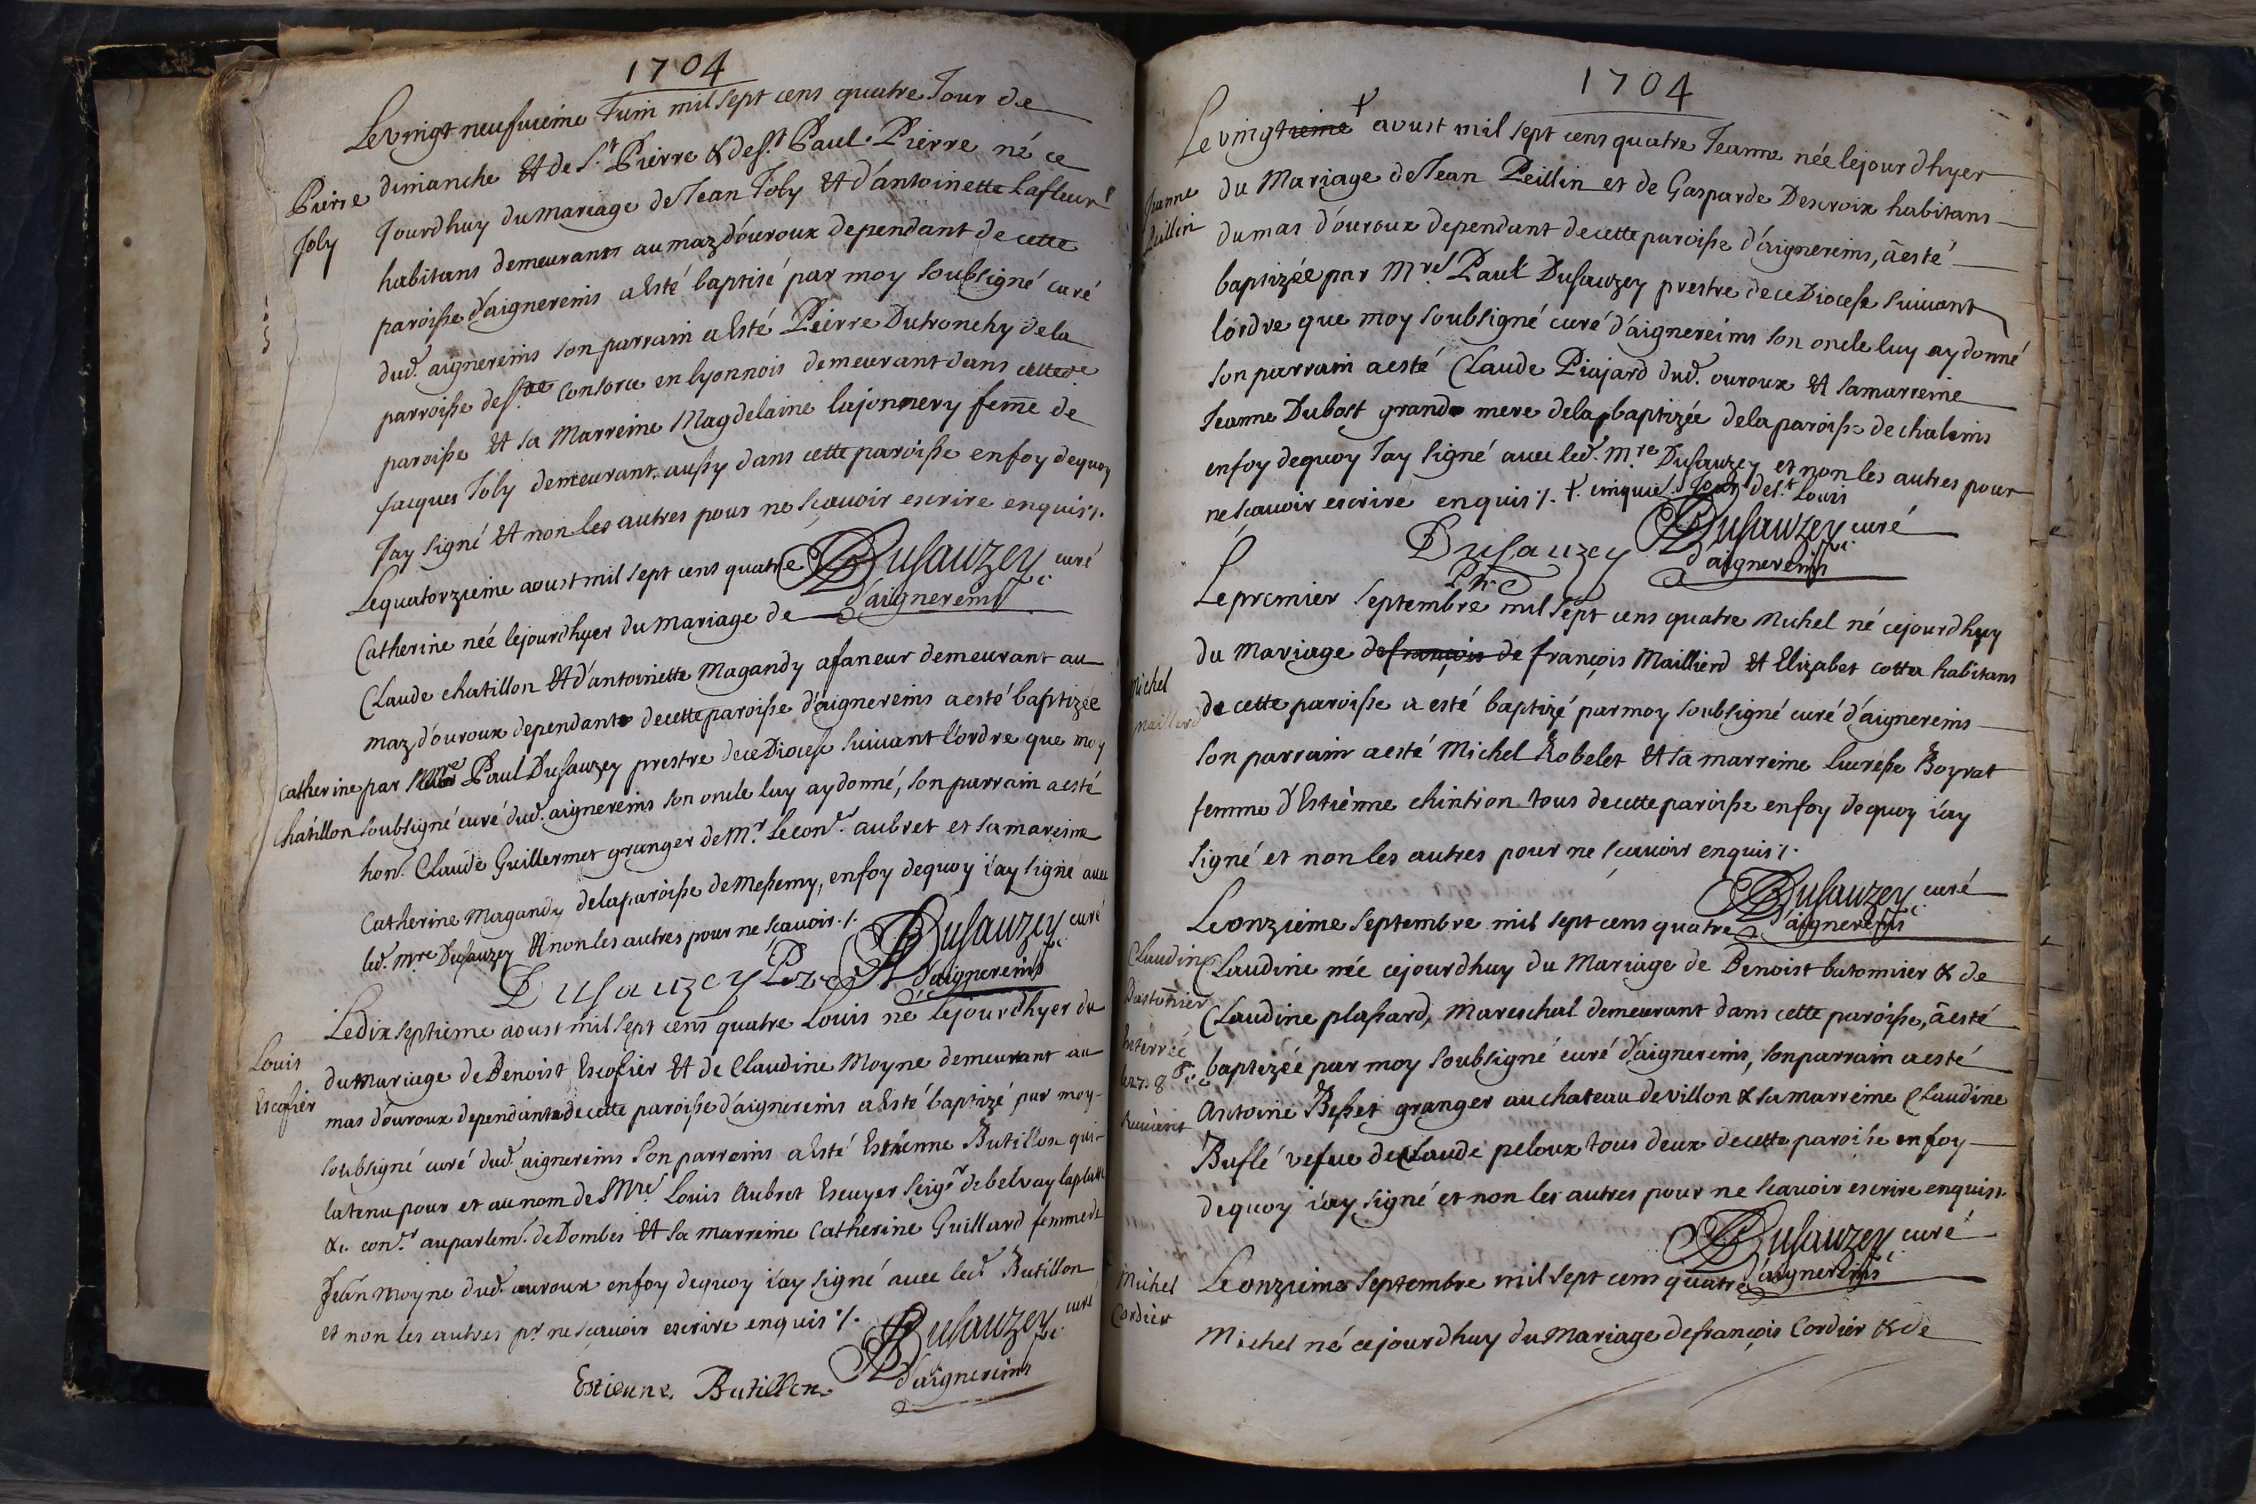 1704
Le vingt neufuieme Juin mil sept cens quatre Jour de
dimanche et de St Pierre & de St Paul. Pierre né ce
Pierre
Joly
Jourdhuy du mariage de Jean Joly et d'antoinette Lafleur
habitans demeurants au maz d'ouroux dependant de cette
paroisse d'aignereins a esté baptisé par moy soubsigné curé
dud. aignereins son parrain a esté Pierre Dutronchy de la
parroisse de Ste Consorce en lyonnois demeurant dans cette
paroisse et sa Marreine Magdelaine lajonnery feme de
Jacques Joly demeurant aussy dans cette paroisse en foy dequoy
Jay signé et non les autres pour ne sçavoir escrire enquis ./.
Dusauzey curé
d'aignereins
Le quatorzieme aoust mil sept cens quatre
Catherine née le jourdhyer du mariage de
Claude chatillon et d'antoinette Magandy afaneur demeurant au
maz d'ouroux dependant de cette paroisse d'aignereins a esté baptizée
Catherine
chatillon
par Mre Paul Dusauzey prestre de ce Diocese suivant l'ordre que moy
soubsigné curé dud. aignereins son oncle luy ay donné, son parrain a esté
hon. Claude Guillermet granger de Mr. Le conr. aubret et sa mareine
Catherine Magandy de la paroisse de Messemy, en foy dequoy i'ay signé avec
led. Mre Dusauzey et non les autres pour ne scavoir ./.
Dusauzey curé
d'aignereins
Dusauzey Ptre
Le dix septieme aoust mil sept cens quatre Louis né le jourdhyer du
Louis
Escofier
du mariage de Benoist Escofier et de Claudine Moyne demeurant au
mas d'ouroux dependant de cette paroisse d'aignereins a esté baptizé par moy
soubsigné curé dud. aignereins son parreins a esté Estienne Butillon qui
la tenu pour et au nom de Mre Louis Aubret Escuyer Seigr de belvay laplatte
&c. conr. au parlem. de Dombes et sa marreine Catherine Guillard femme de
Jean Moyne dud. ouroux en foy dequoy i'ay signé avec led. Butillon
et non les autres pr ne sçavoir escrire enquis ./.
Dusauzey curé
d'aignereins
Estienne Butillon
1704
Le vingtieme + avust mil sept cens quatre Jeanne née le jour dhyer
Jeanne
Peillin
du Mariage de Jean Peillin et de Gasparde Descroix habitans
du mas d'ouroux dependant de cette paroisse d'aignereins, a esté
baptizée par Mre Paul Dusauzey prestre de ce Diocese suivant
l'ordre que moy soubsigné curé d'aignereins son oncle luy ay donné
son parrain a esté Claude Piajard dud. ouroux et sa marreine
Jeanne Dubost grand mere de la baptizée de la paroisse de chaleins
en foy dequoy Jay signé avec led. Mre Dusauzey et non les autres pour
ne scavoir escrire enquis ./. + cinquie. Jour de St Louis
Dusauzey curé
d'aignereins
Dusauzey
Ptre
Le premier Septembre mil sept cens quatre Michel né cejourdhuy
Michel
Maillierd
du Mariage de françois de françois Maillierd et Elizabet cotta habitans
de cette paroisse a esté baptizé par moy soubsigné curé d'aignereins
son parrain a esté Michel Robelet et sa marreine Lucresse Boyrat
femme d'Estienne chintion tous de cette paroisse en foy dequoy i'ay
signé et non les autres pour ne scavoir enquis ./.
Dusauzey curé
d'aignereins
Le onzieme Septembre mil sept cens quatre
Claudine
Bastonier
Enterrée
le 27. 8bre
Claudine née cejourdhuy du Mariage de Benoist batonnier & de
Claudine plassard, Mareschal demeurant dans cette paroisse, a esté
baptizée par moy soubsigné curé d'aignereins, son parrain a esté
Antoine Besset granger au chateau de villon & sa marreine Claudine
Buflé vefue de Claude peloux tous deux de cette paroisse en foy
dequoy i'ay signé et non les autres pour ne scavoir escrire enquis ./.
Dusauzey curé
d'aignereins
Michel
Cordier
Le onzieme Septembre mil sept cens quatre
Michel né cejourdhuy du Mariage de françois Cordier & de